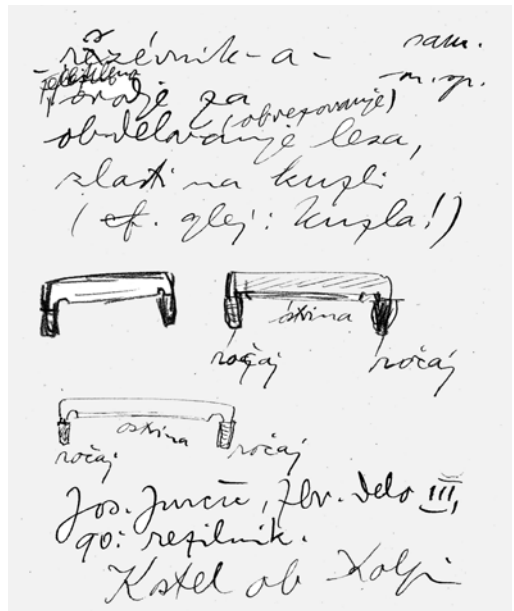 rezévnik -a- sam.
m. sp.
orodje za
obdelovanje (obrezovanje) lesa,
zlasti na kuzli
(cf. glej: kuzla!)
ostrina
ročaj ročaj
ostrina
ročaj ročaj
Jos. Jurčič, Zbr. delo III,
90: rezilnik.
Kostel ob Kolpi